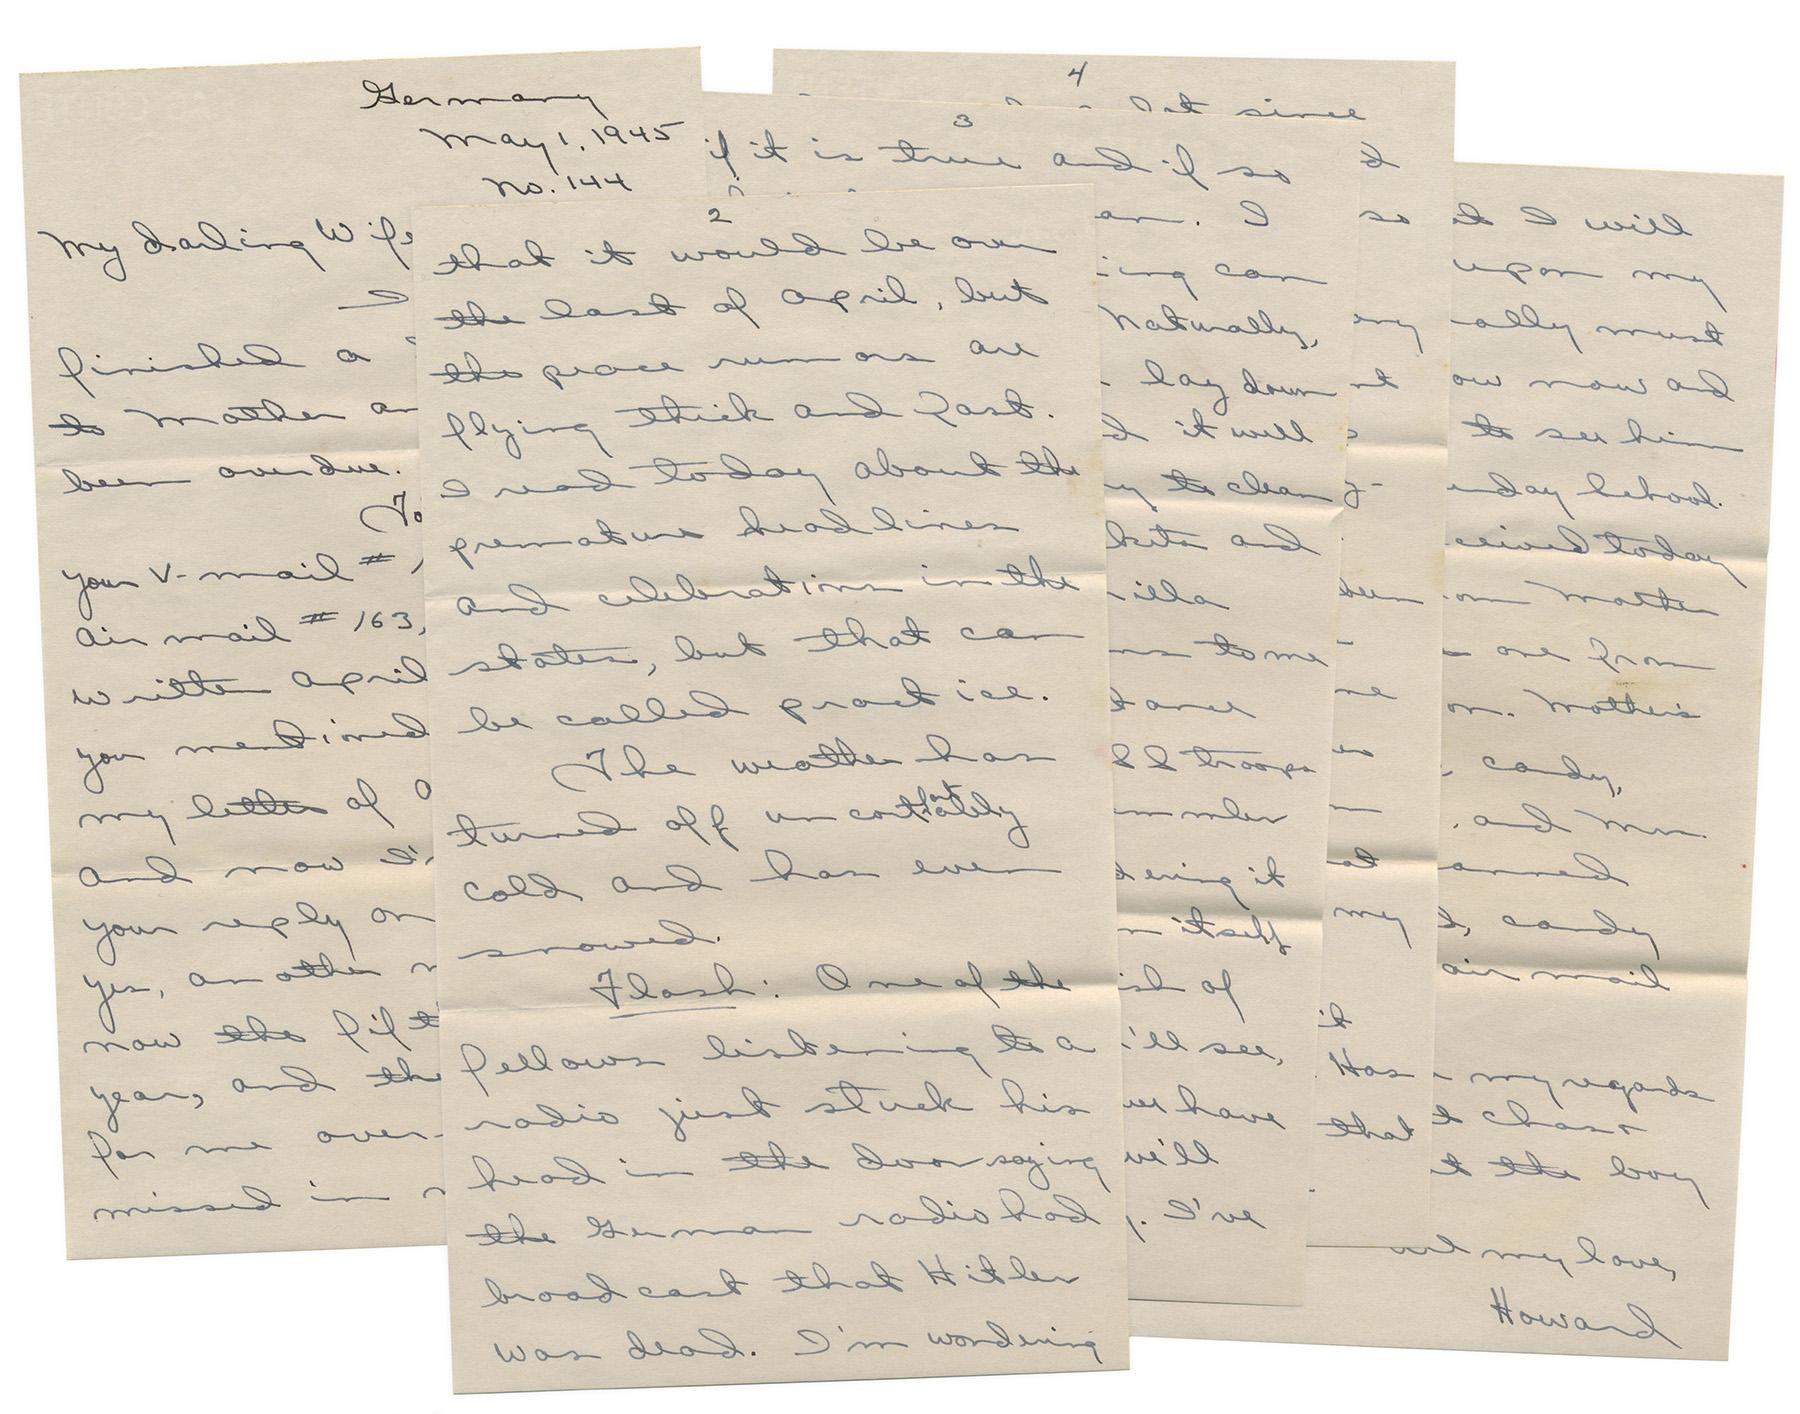 Germany
May 1, 1945
No. 144
My darling Wife
I
finished a
to Mother an
been overdue.
To
your V-mail #
air mail #163,
written April
you mentioned
my letter of
and now I'
your reply on
yes, another
now the fift
year, and the
for me over-
missed in
2
that it would be over
the last of April, but
the peace rumors are
flying thick and fast.
I read today about the
premature headlines
and celebrations in the
states, but that can
be called practice.
The weather has
turned off uncomfortably
cold and has even
snowed.
Flash: One of the
fellows listening to a
radio just stuck his
head in the door saying
the German radio had
broadcast that Hitler
was dead. I'm wondering
3
if it is true and if so
an. I
ing can
Naturally,
lay down
d it will
y to clean
kets and
illa
ns to me
tance
SS troops
ember
dering it
n itself
sh of
'll see,
we have
we'll
y. I've
4
but since
d
so
ny
nt
y-
been
me
at
my
it
Has
that
at I will
upon my
eally must
ow now and
to see him
unday School.
ceived today
om Mother
one from
on. Mother's
, candy,
, and Mrs.
anned
d, candy
air mail
my regards
d Chas +
t the boy
my love,
Howard